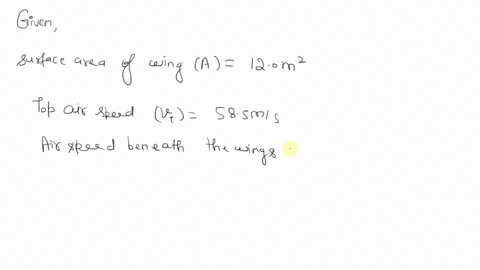 Given,
surface area of wing (A) = 12.0 m²
Top air speed (v_T) = 58.5 m/s
Air speed beneath the wings